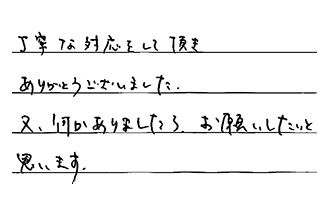 丁寧な対応をして頂き
ありがとうございました.
又、何かありましたら お願いしたいと
思います.